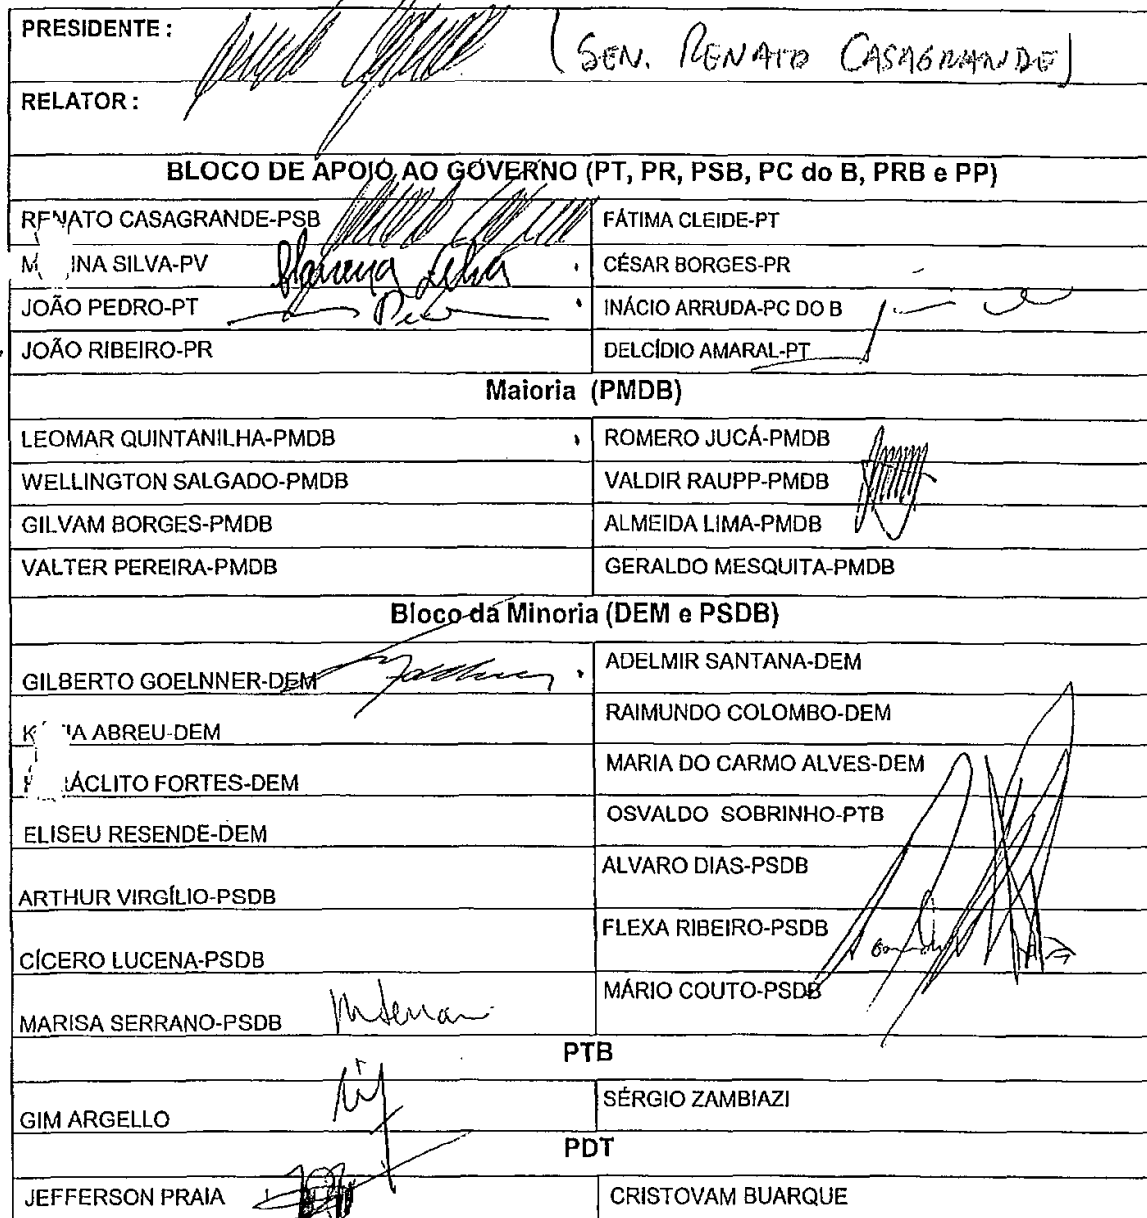 PRESIDENTE :
(SEN. RENATO CASAGRANDE)
RELATOR :
BLOCO DE APOIO AO GOVERNO (PT, PR, PSB, PC do B, PRB e PP)
RENATO CASAGRANDE-PSB FÁTIMA CLEIDE-PT
INA SILVA-PV Marina Silva CÉSAR BORGES-PR
JOÃO PEDRO-PT INÁCIO ARRUDA-PC DO B
JOÃO RIBEIRO-PR DELCÍDIO AMARAL-PT
Maioria (PMDB)
LEOMAR QUINTANILHA-PMDB ROMERO JUCÁ-PMDB
WELLINGTON SALGADO-PMDB VALDIR RAUPP-PMDB
GILVAM BORGES-PMDB ALMEIDA LIMA-PMDB
VALTER PEREIRA-PMDB GERALDO MESQUITA-PMDB
Bloco da Minoria (DEM e PSDB)
GILBERTO GOELNNER-DEM ADELMIR SANTANA-DEM
IA ABREU-DEM RAIMUNDO COLOMBO-DEM
ÁCLITO FORTES-DEM MARIA DO CARMO ALVES-DEM
ELISEU RESENDE-DEM OSVALDO SOBRINHO-PTB
ARTHUR VIRGÍLIO-PSDB ALVARO DIAS-PSDB
CÍCERO LUCENA-PSDB FLEXA RIBEIRO-PSDB
MARISA SERRANO-PSDB MÁRIO COUTO-PSDB
PTB
GIM ARGELLO SÉRGIO ZAMBIAZI
PDT
JEFFERSON PRAIA CRISTOVAM BUARQUE